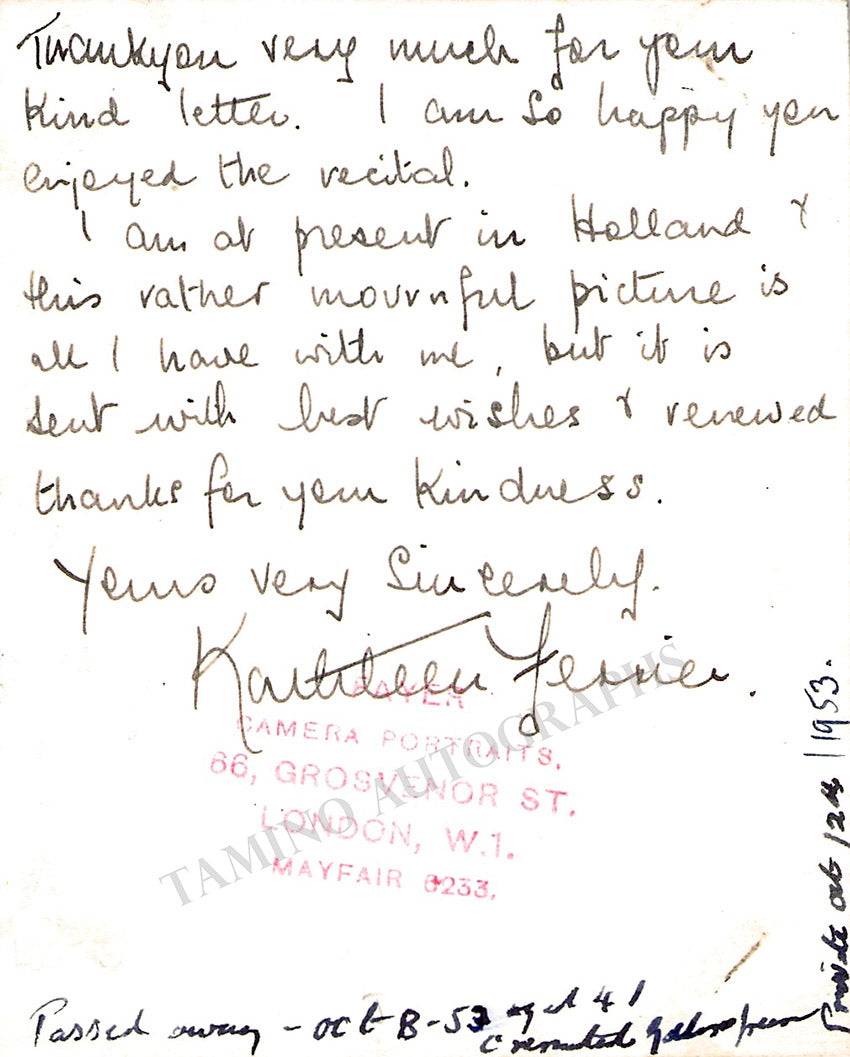 Thankyou very much for your
kind letter. I am so happy you
enjoyed the recital.
I am at present in Holland &
this rather mournful picture is
all I have with me, but it is
sent with best wishes & renewed
thanks for your kindness.
Yours very sincerely.
Kathleen Ferrier.
CAMERA PORTRAITS,
66, GROSVENOR ST.
LONDON, W.1.
MAYFAIR 6233.
TAMINO AUTOGRAPHS
Passed away - oct 8 - 53 aged 41
Cremated
oct / 24 / 1953.